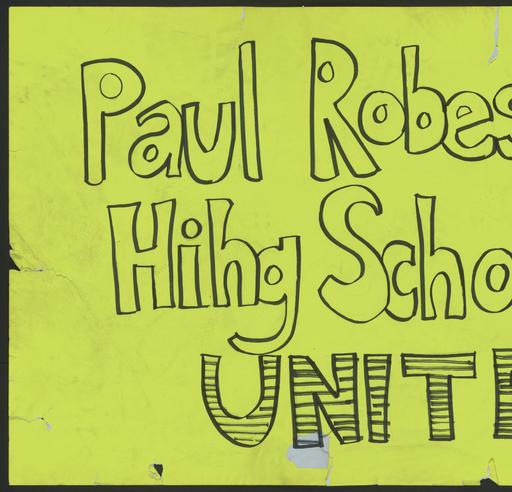 Paul Robes
Hihg Scho
UNITE